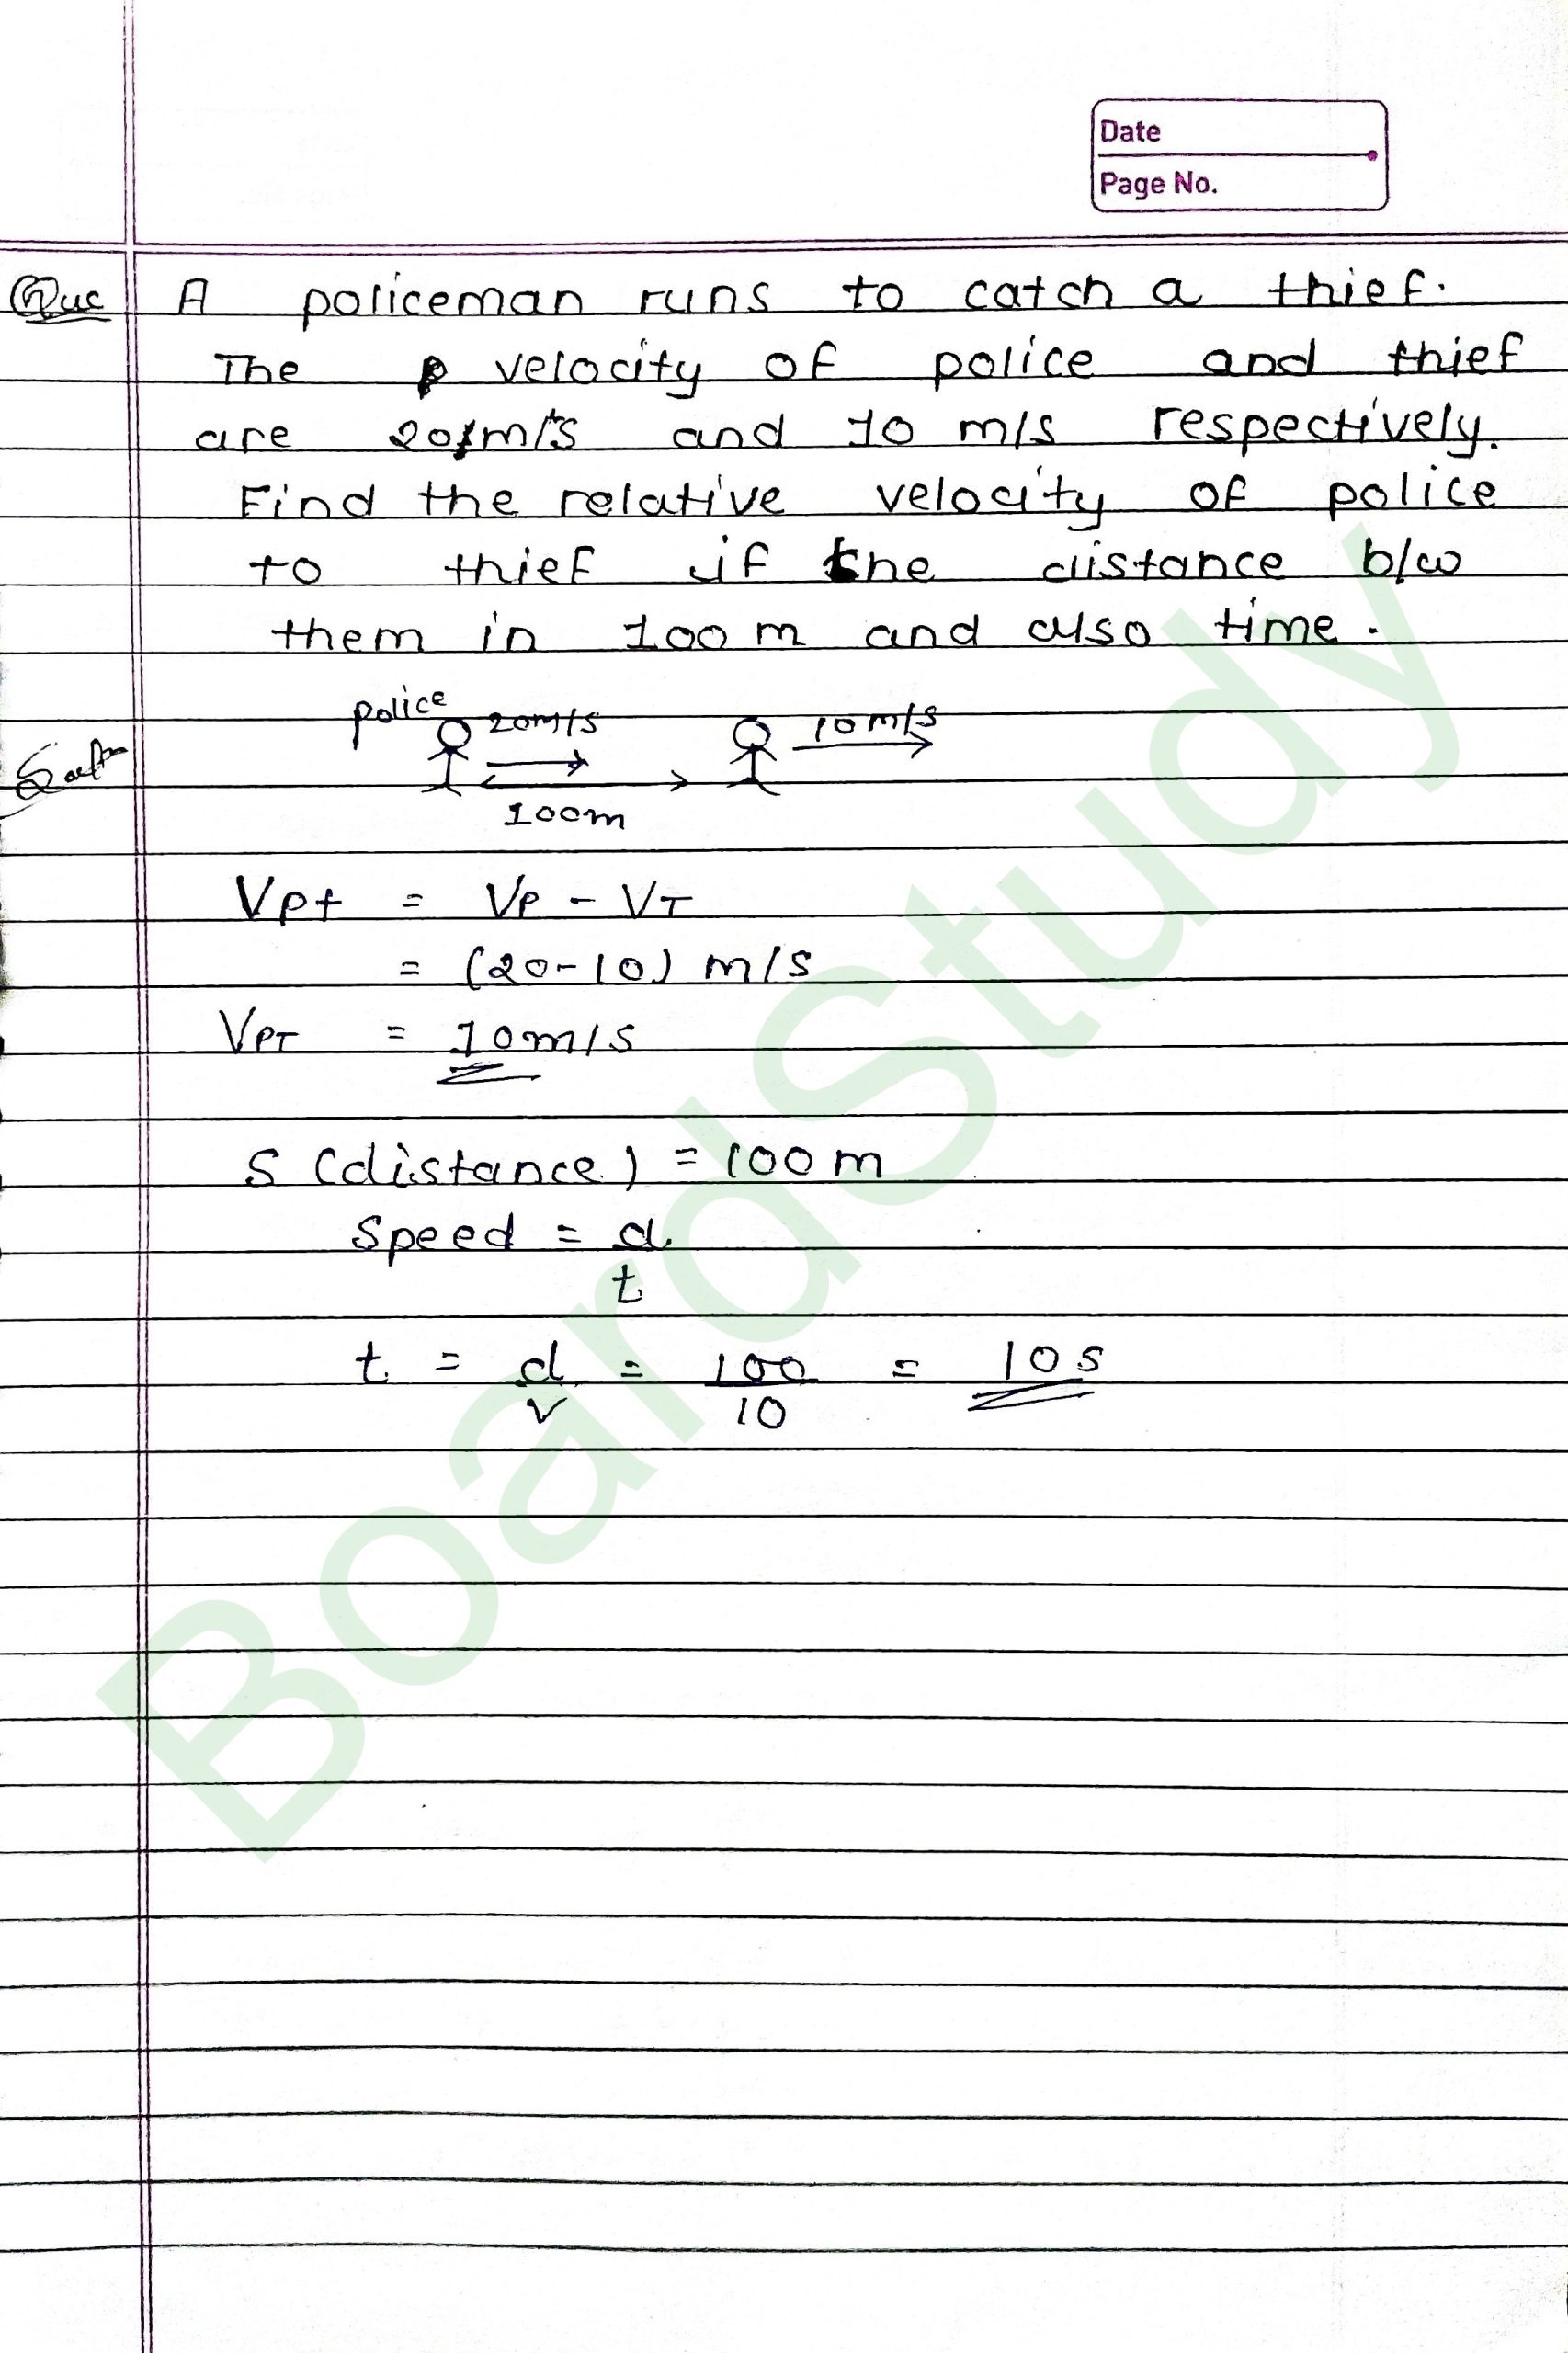 Date
Page No.
Que A policeman runs to catch a thief.
The velocity of police and thief
are 20 m/s and 10 m/s respectively.
Find the relative velocity of police
to thief if the distance b/w
them in 100 m and also time.
police 20m/s 10m/s
Soln
100m
Vpt = VP - VT
= (20-10) m/s
VPT = 10m/s
S (distance) = 100 m
Speed = d
t
t = d = 100 = 10 s
v 10
BoardStudy